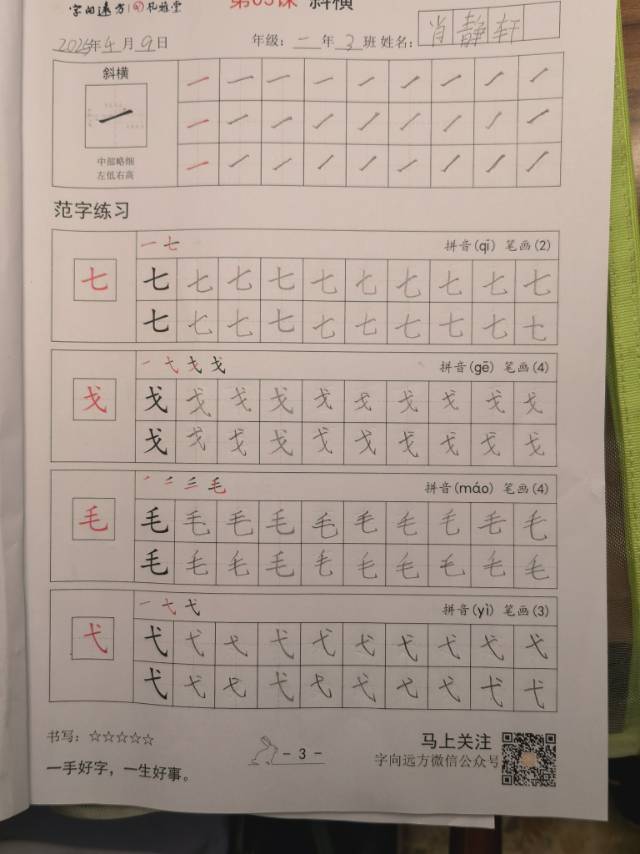 字向远方 札雅堂
第03课 斜横
2025年4月9日 年级：一年3班 姓名：肖静轩
斜横
中部略细
左低右高
范字练习
一 七 拼音(qī) 笔画(2)
七 七 七 七 七 七 七 七 七 七 七
七 七 七 七 七 七 七 七 七 七
一 弋 戈 戈 拼音(gē) 笔画(4)
戈 戈 戈 戈 戈 戈 戈 戈 戈 戈 戈
戈 戈 戈 戈 戈 戈 戈 戈 戈 戈
㇒ 二 三 毛 拼音(máo) 笔画(4)
毛 毛 毛 毛 毛 毛 毛 毛 毛 毛 毛
毛 毛 毛 毛 毛 毛 毛 毛 毛 毛
一 弋 弋 拼音(yì) 笔画(3)
弋 弋 弋 弋 弋 弋 弋 弋 弋 弋 弋
弋 弋 弋 弋 弋 弋 弋 弋 弋 弋
书写：☆☆☆☆☆
一手好字，一生好事。
- 3 -
马上关注
字向远方微信公众号